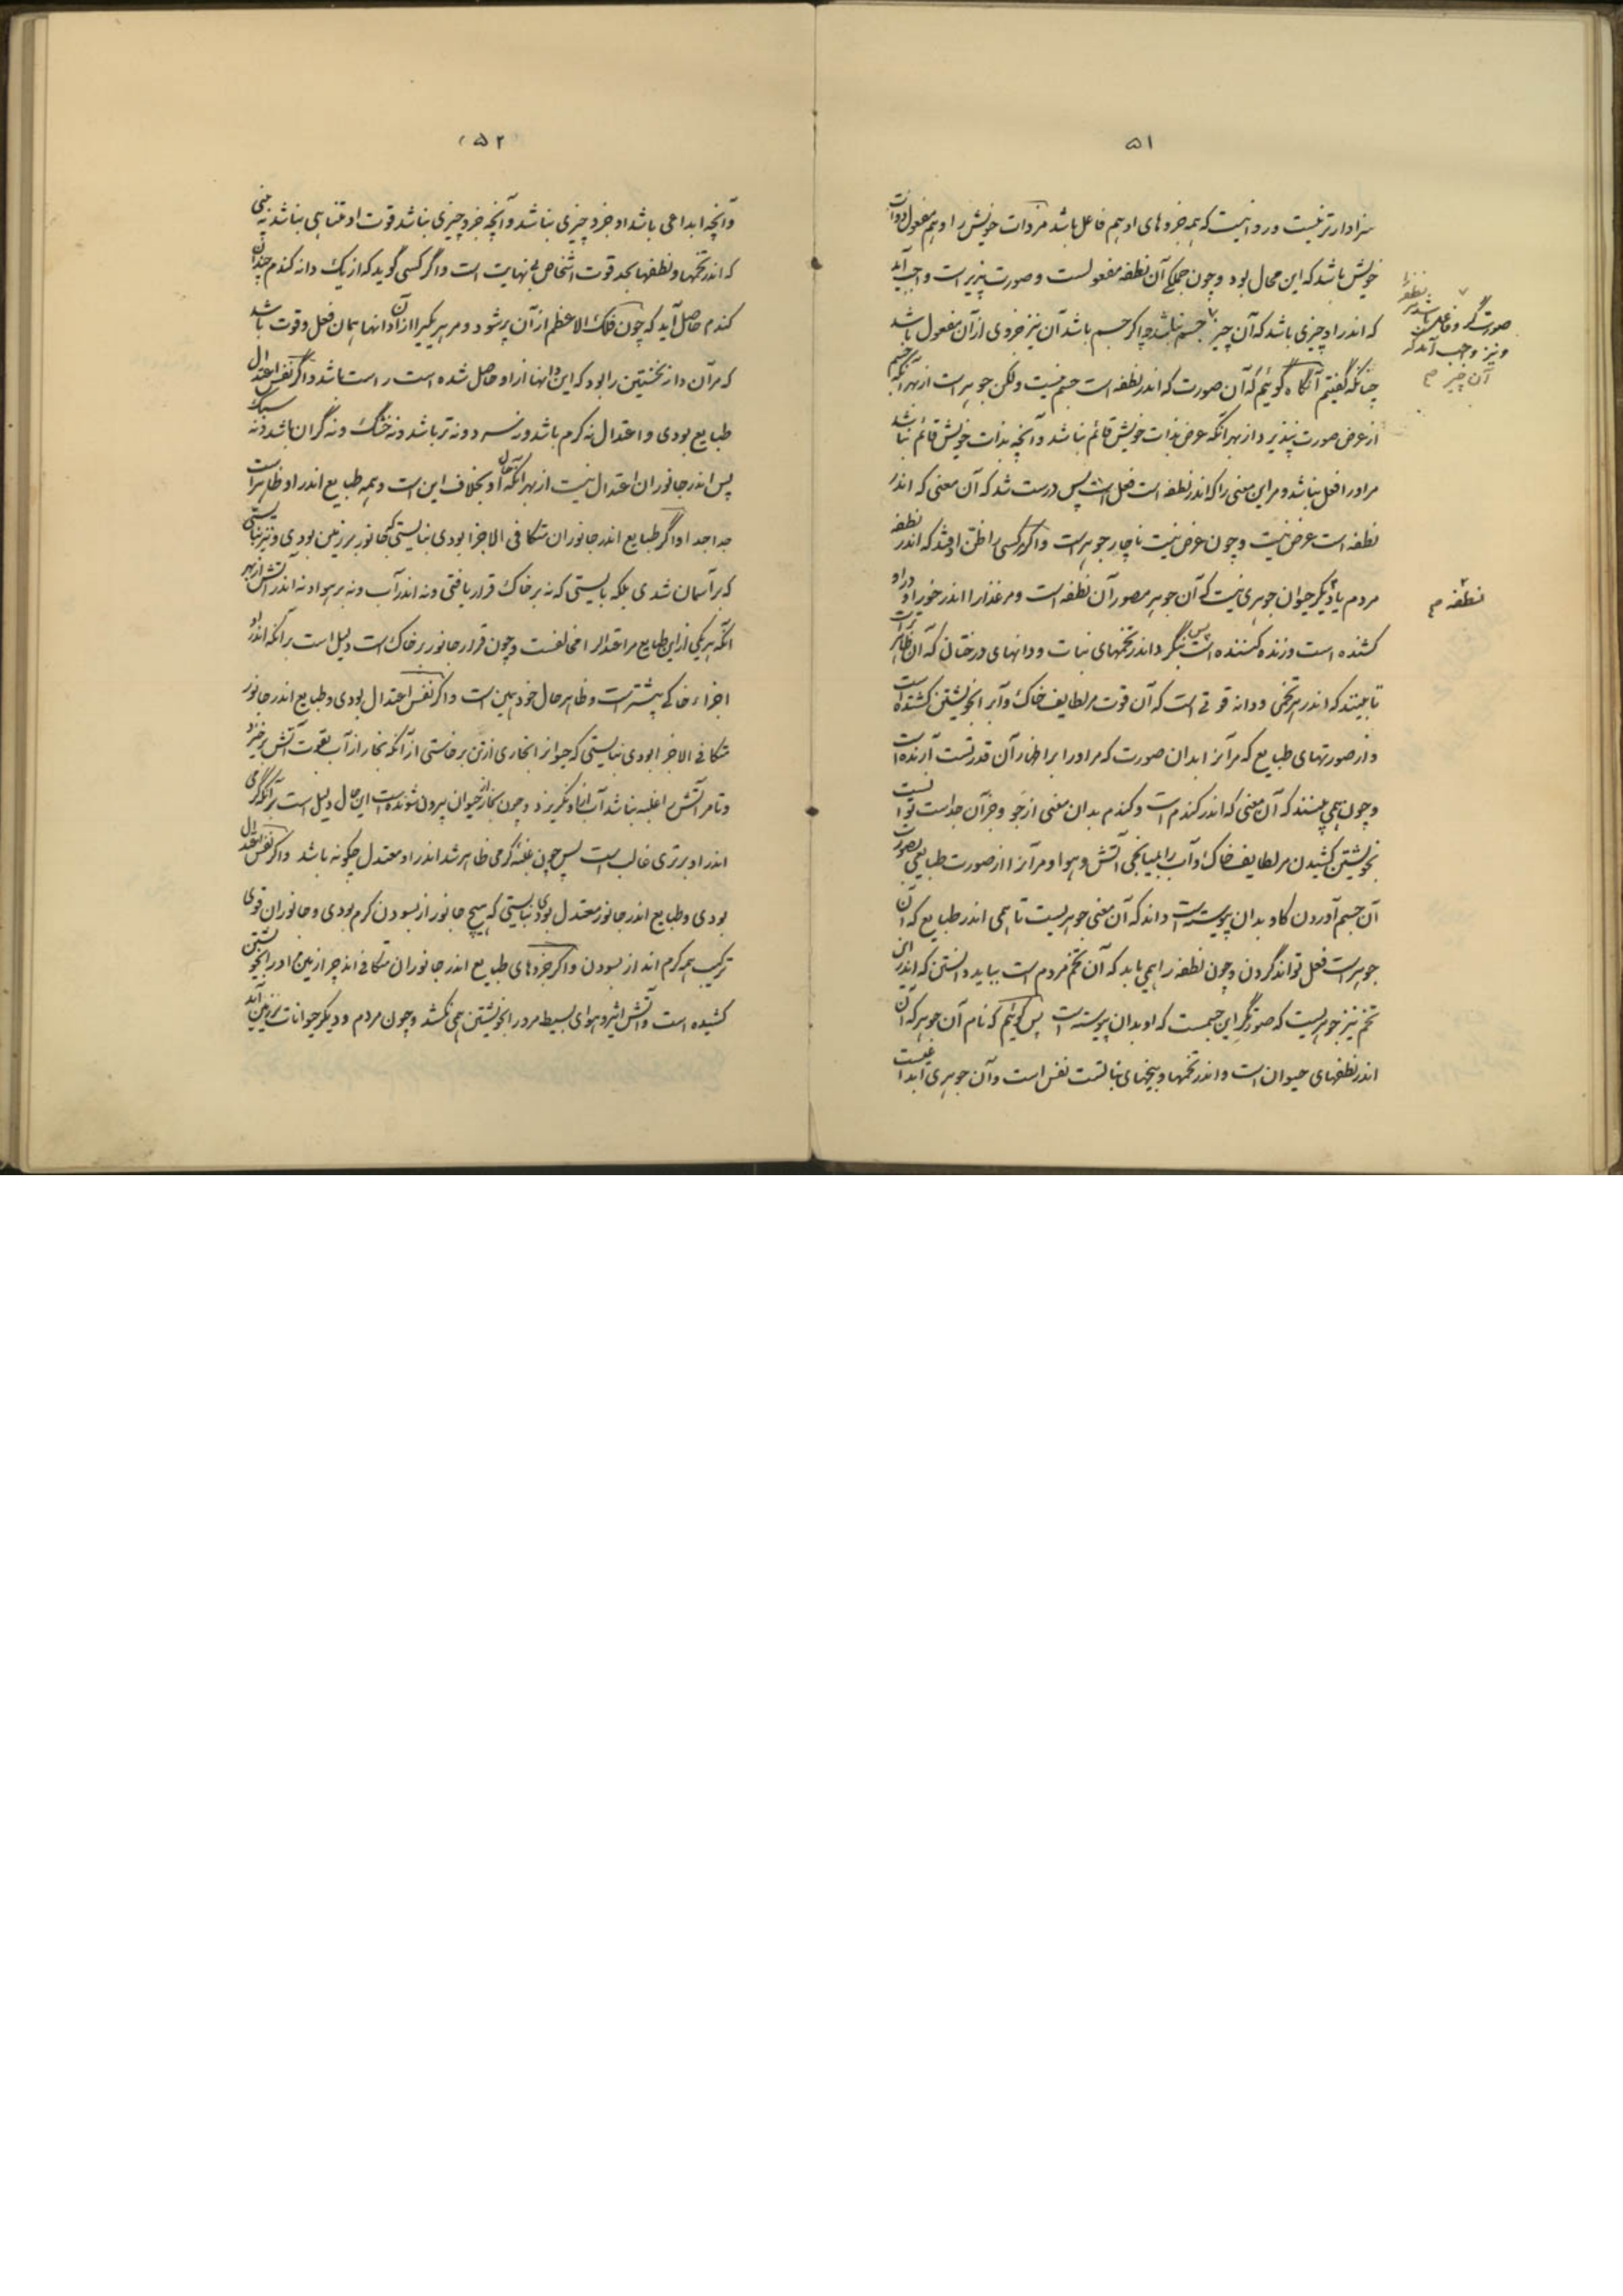 ۵۱
سزاوارتر نیست و روا نیست که همه جزوهای او هم فاعل باشد مر ذات خویش را و هم مفعول ذات
خویش باشد که این محال بود و چون جملگی آن نطفه مفعولست و صورت پذیر است واجب آید
که اندر او چیزی باشد که آن چیز جسم نباشد و اگر جسم باشد آن نیز جزوی از آن مفعول باشد
چنانکه گفتیم آنگاه گوئیم که آن صورت که اندر نطفه است جسم نیست ولکن جوهر است از بهر آنکه جسم
از عرض صورت نپذیرد و از بهر آنکه عرض بذات خویش قائم نباشد و آنچه بذات خویش قائم نباشد
مر او را فعل نباشد و مر این معنی را که اندر نطفه است فعل است پس درست شد که آن معنی که اندر
نطفه است عرض نیست و چون عرض نیست ناچار جوهر است و اگر کسی را ظن اوفتد که اندر نطفه
مردم یا دیگر حیوان جوهری نیست که آن جوهر مصور آن نطفه است و مر غذا را اندر خور او
کشنده است و زنده کننده است پس بنگرد اندر تخمهای نبات و دانهای درختان که آن ظاهرتر است
تا ببیند که اندر هر تخمی و دانه قوتی است که آن قوت مر لطایف خاک و آب را بخویشتن کشنده است
و از صورتهای طبایع که مر آنراست بدان صورت که مر او را بر اظهار آن قدرتست آرنده است
و چون همی بیند که آن معنی که اندر گندم است و گندم بدان معنی از جو و جز آن جداست توانست
بخویشتن کشیدن مر لطایف خاک و آب را بمیانجی آتش و هوا و مر آنرا از صورت طبایعی بصورت
آن جسم آوردن که او بدان پیوسته است داند که آن معنی جوهریست تا همی اندر طبایع که آن
جوهر است فعل تواند کردن و چون نطفه را همی یابد که آن تخم مردم است بباید دانستن که اندر این
تخم نیز جوهریست که صورتگر این جسمست که او بدان پیوسته است پس گوئیم که نام آن جوهر که آن
اندر نطفهای حیوان است و اندر تخمها و بیخهای نباتست نفس است و آن جوهری ابداعیست
صورتگر و فاعل باشد مر نطفه را
و نیز واجب آید که
آن چیز م
نطفه م
۵۲
و آنچه ابداعی باشد او جزو چیزی نباشد و آنچه جزو چیزی نباشد قوت او متناهی نباشد نبینی
که اندر تخمها و نطفها بحد قوت اشخاص بی نهایت است و اگر کسی گوید که از یک دانه گندم چندان
گندم حاصل آید که چون فلک الاعظم از آن پر شود و مر هر یکی را از آن دانها همان فعل و قوت باشد
که مر آن دانه نخستین را بود که این دانها از او حاصل شده است راست باشد و اگر نفس اعتدال
طبایع بودی و اعتدال نه گرم باشد و نه سرد و نه تر باشد و نه خشک و نه گران باشد و نه سبک
پس اندر جانوران اعتدال نیست از بهر آنکه حال او بخلاف این است و همه طبایع اندر او ظاهر است
جدا جدا و اگر طبایع اندر جانوران متکافی الاجزا بودی نبایستی که جانور بر زمین بودی و نیز نبایستی
که بر آسمان شدی بلکه بایستی که نه بر خاک قرار یافتی و نه اندر آب و نه بر هوا و نه اندر آتش از بهر
آنکه هر یکی از این طبایع مر اعتدال را مخالفست و چون قرار جانور بر خاک است دلیل است بر آنکه اندر او
اجزاء خاکی بیشتر است و ظاهر حال خود همین است و اگر نفس اعتدال بودی و طبایع اندر جانور
متکافی الاجزا بودی نبایستی که حیوانرا بخاری از تن برخاستی از آنکه بخار از آب بقوت آتش برخیزد
و تا مر آتش را غلبه نباشد آب از او نگریزد و چون بخار از حیوان بیرون شونده است این حال دلیل است بر آنکه گرمی
اندر او بر تری غالب است پس چون غلبه گرمی ظاهر شد اندر او معتدل چگونه باشد و اگر نفس اعتدال
بودی و طبایع اندر جانور معتدل بودی نبایستی که هیچ جانور از بسودن گرم بودی و جانوران قوی
ترکیب همه گرم اند از بسودن و اگر جزوهای طبایع اندر جانوران متکافی اند چرا زمین او را بخویشتن
کشیده است و آتش اثیر و هوای بسیط مر او را بخویشتن همی نکشد و چون مردم و دیگر حیوانات بر زمین آید